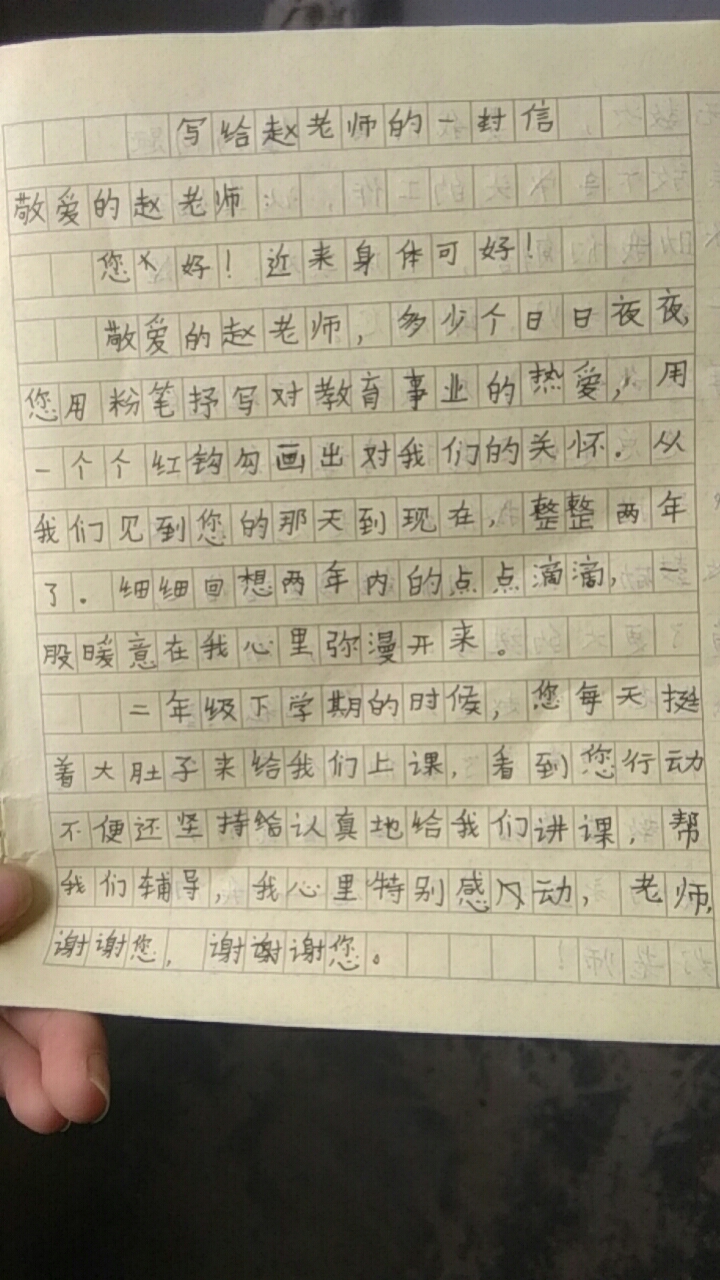 写给赵老师的一封信
敬爱的赵老师：
您好！近来身体可好！
敬爱的赵老师，多少个日日夜夜，
您用粉笔抒写对教育事业的热爱，用
一个个红钩勾画出对我们的关怀。从
我们见到您的那天到现在，整整两年
了。细细回想两年内的点点滴滴，一
股暖意在我心里弥漫开来。
二年级下学期的时候，您每天挺
着大肚子来给我们上课，看到您行动
不便还坚持给认真地给我们讲课，帮
我们辅导，我心里特别感动，老师，
谢谢您，谢谢谢您。